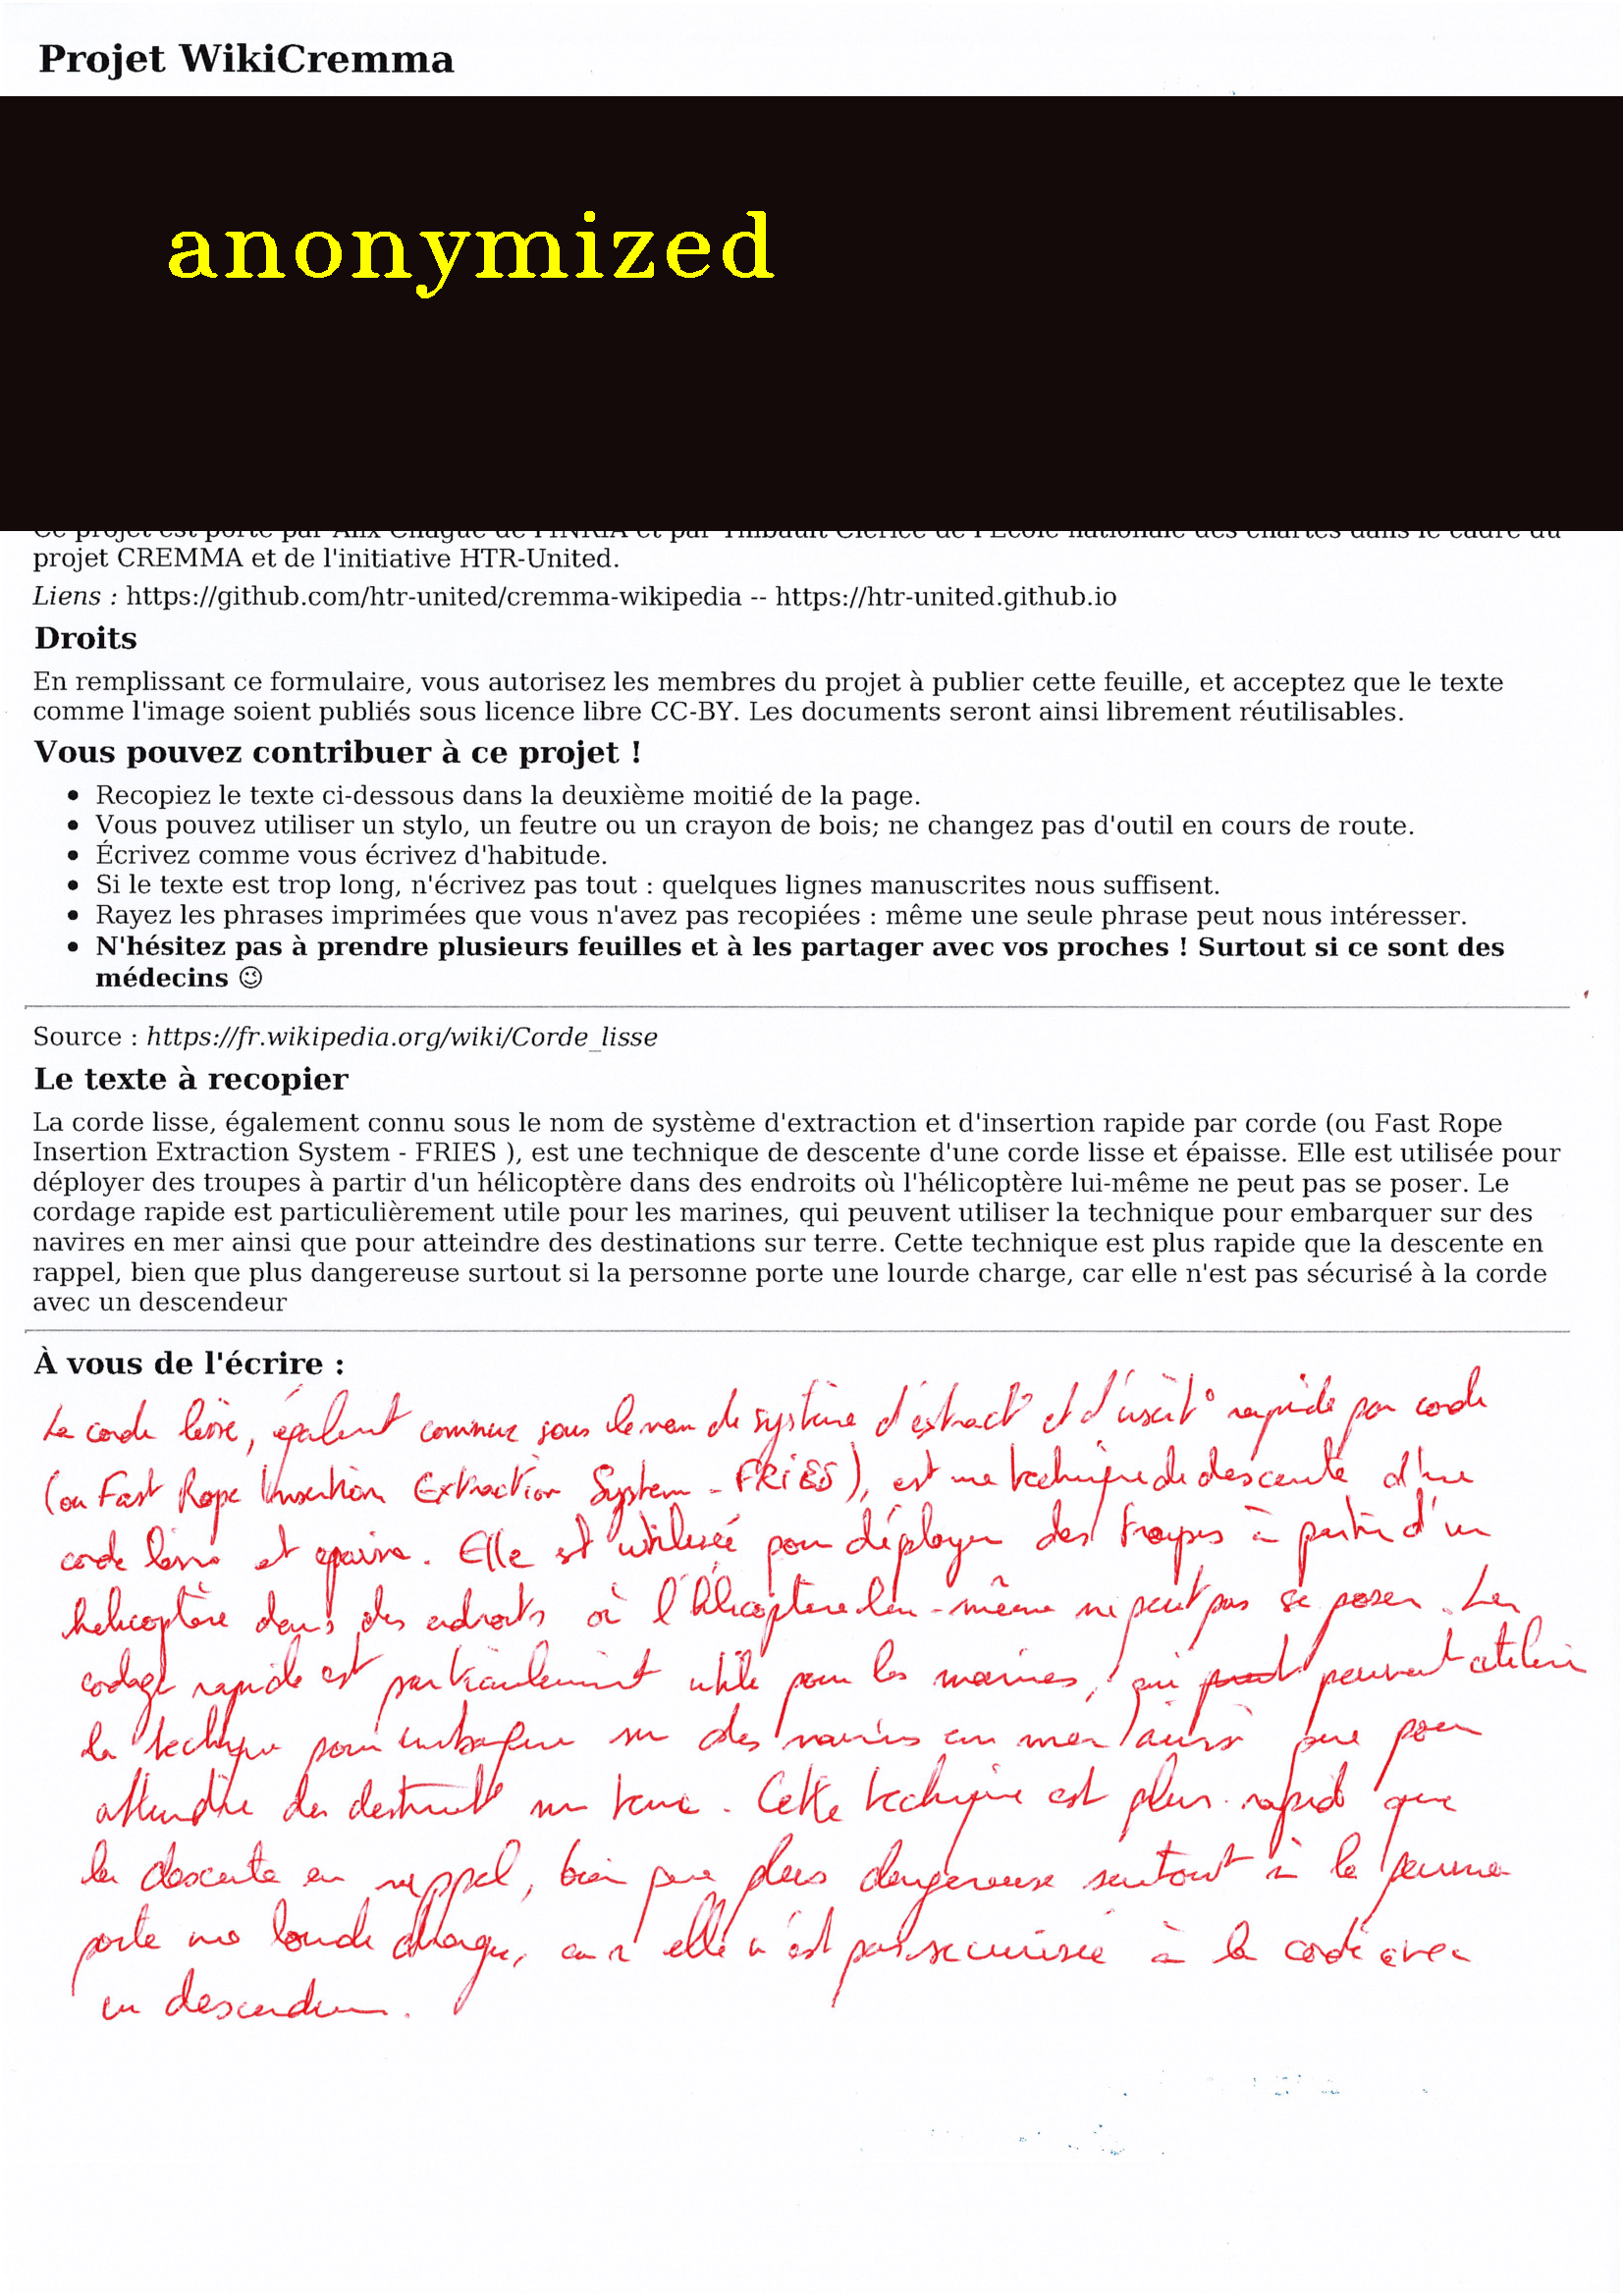 Projet WikiCremma
anonymized
Ce projet est porté par Alix Chagué de l'INRIA et par Thibault Clérice de l'École nationale des chartes dans le cadre du
projet CREMMA et de l'initiative HTR-United.
Liens : https://github.com/htr-united/cremma-wikipedia -- https://htr-united.github.io
Droits
En remplissant ce formulaire, vous autorisez les membres du projet à publier cette feuille, et acceptez que le texte
comme l'image soient publiés sous licence libre CC-BY. Les documents seront ainsi librement réutilisables.
Vous pouvez contribuer à ce projet !
• Recopiez le texte ci-dessous dans la deuxième moitié de la page.
• Vous pouvez utiliser un stylo, un feutre ou un crayon de bois; ne changez pas d'outil en cours de route.
• Écrivez comme vous écrivez d'habitude.
• Si le texte est trop long, n'écrivez pas tout : quelques lignes manuscrites nous suffisent.
• Rayez les phrases imprimées que vous n'avez pas recopiées : même une seule phrase peut nous intéresser.
• N'hésitez pas à prendre plusieurs feuilles et à les partager avec vos proches ! Surtout si ce sont des
médecins 😉
Source : https://fr.wikipedia.org/wiki/Corde_lisse
Le texte à recopier
La corde lisse, également connu sous le nom de système d'extraction et d'insertion rapide par corde (ou Fast Rope
Insertion Extraction System - FRIES ), est une technique de descente d'une corde lisse et épaisse. Elle est utilisée pour
déployer des troupes à partir d'un hélicoptère dans des endroits où l'hélicoptère lui-même ne peut pas se poser. Le
cordage rapide est particulièrement utile pour les marines, qui peuvent utiliser la technique pour embarquer sur des
navires en mer ainsi que pour atteindre des destinations sur terre. Cette technique est plus rapide que la descente en
rappel, bien que plus dangereuse surtout si la personne porte une lourde charge, car elle n'est pas sécurisé à la corde
avec un descendeur
À vous de l'écrire :
La corde lisse, égalemt connue sous le nom de système d'extract° et d'insert° rapide par corde
(ou Fast Rope Insertion Extraction System - FRIES), est une technique de descente d'une
corde lisse et epaisse. Elle est utilisée pour déployer des troupes à partir d'un
helicoptère dans des endroits où l'hélicoptère lui-même ne peut pas se poser. Le
cordage rapide est particulierement utile pour les marines, qui peuvent utiliser
la technique pour embarquer sur des navires en mer ainsi que pour
atteindre des destinat° sur terre. Cette technique est plus rapide que
la descente en rappel, bien que plus dangereuse surtout si la personne
porte une lourde charge, car elle n'est pas securisée à la corde avec
un descendeur.